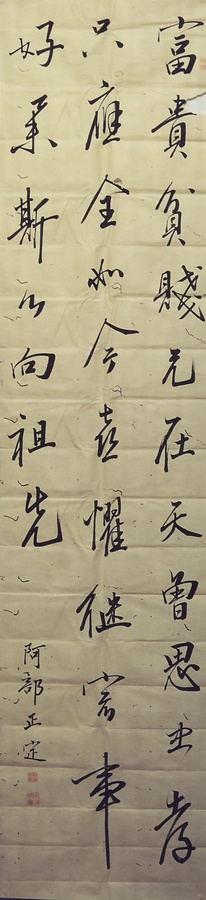 富貴貧賤元在天曾思忠孝
只應全如今喜懼継家事
好斯心向祖先
阿部正定